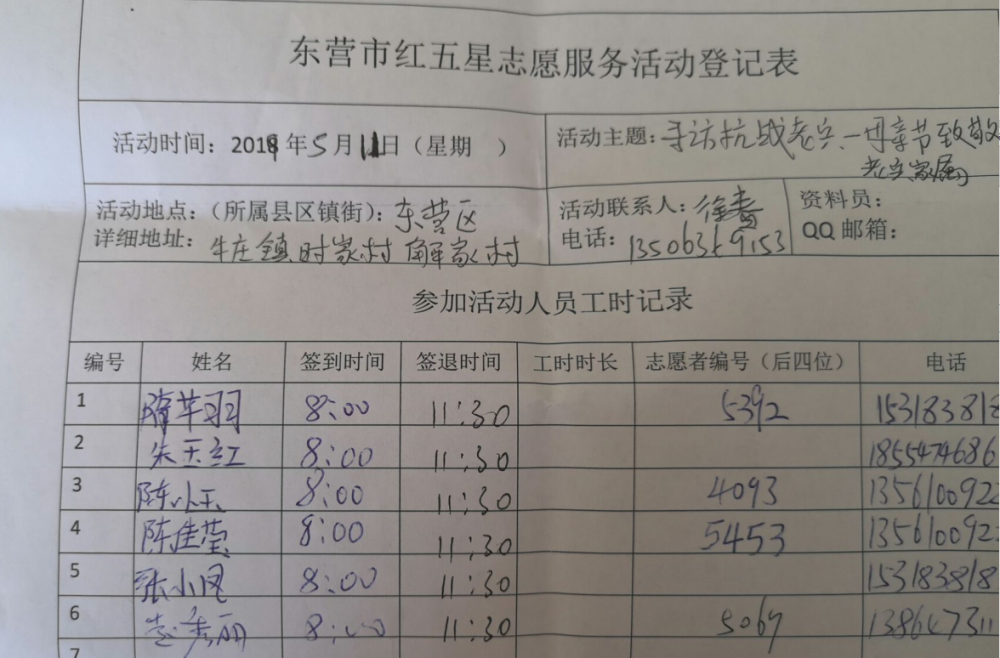 东营市红五星志愿服务活动登记表
活动时间：2019年5月11日（星期　） 活动主题：寻访抗战老兵—母亲节致敬
老兵家属
活动地点：（所属县区镇街）：东营区 活动联系人：徐 资料员：
详细地址：牛庄镇时家村 解家村 电话：13506369153 QQ邮箱：
参加活动人员工时记录
编号 姓名 签到时间 签退时间 工时时长 志愿者编号（后四位） 电话
1 隋芊羽 8:00 11:30 5392 153183818
2 朱玉红 8:00 11:30 1855474686
3 陈小玉 8:00 11:30 4093 1356100922
4 陈佳莹 8:00 11:30 5453 135610092
5 张小凤 8:00 11:30 153183818
6 秀丽 8:00 11:30 5067 138647311
7